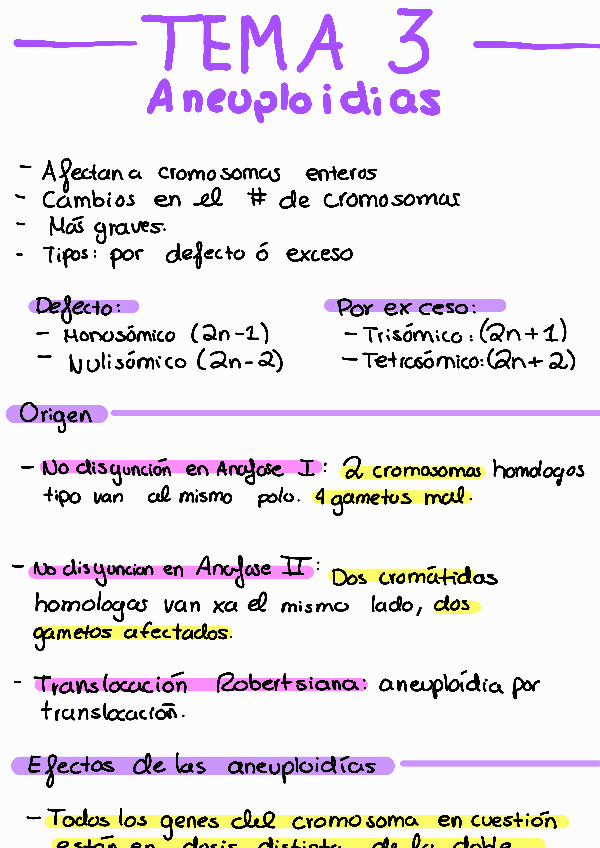 TEMA 3
Aneuploidias
- Afectan a cromosomas enteros
- Cambios en el # de cromosomas
- Más graves.
- Tipos: por defecto ó exceso
Defecto:
- Monosómico (2n-1)
- Nulisómico (2n-2)
Por exceso:
- Trisómico: (2n+1)
- Tetrasómico: (2n+2)
Origen
- No disyunción en Anafase I: 2 cromosomas homologos
tipo van al mismo polo. 4 gametos mal.
- No disyuncion en Anafase II: Dos cromátidas
homologas van xa el mismo lado, dos
gametos afectados.
- Translocación Robertsiana: aneuploídia por
translocación.
Efectos de las aneuploidías
- Todos los genes del cromosoma en cuestión
están en dosis distinta de la doble